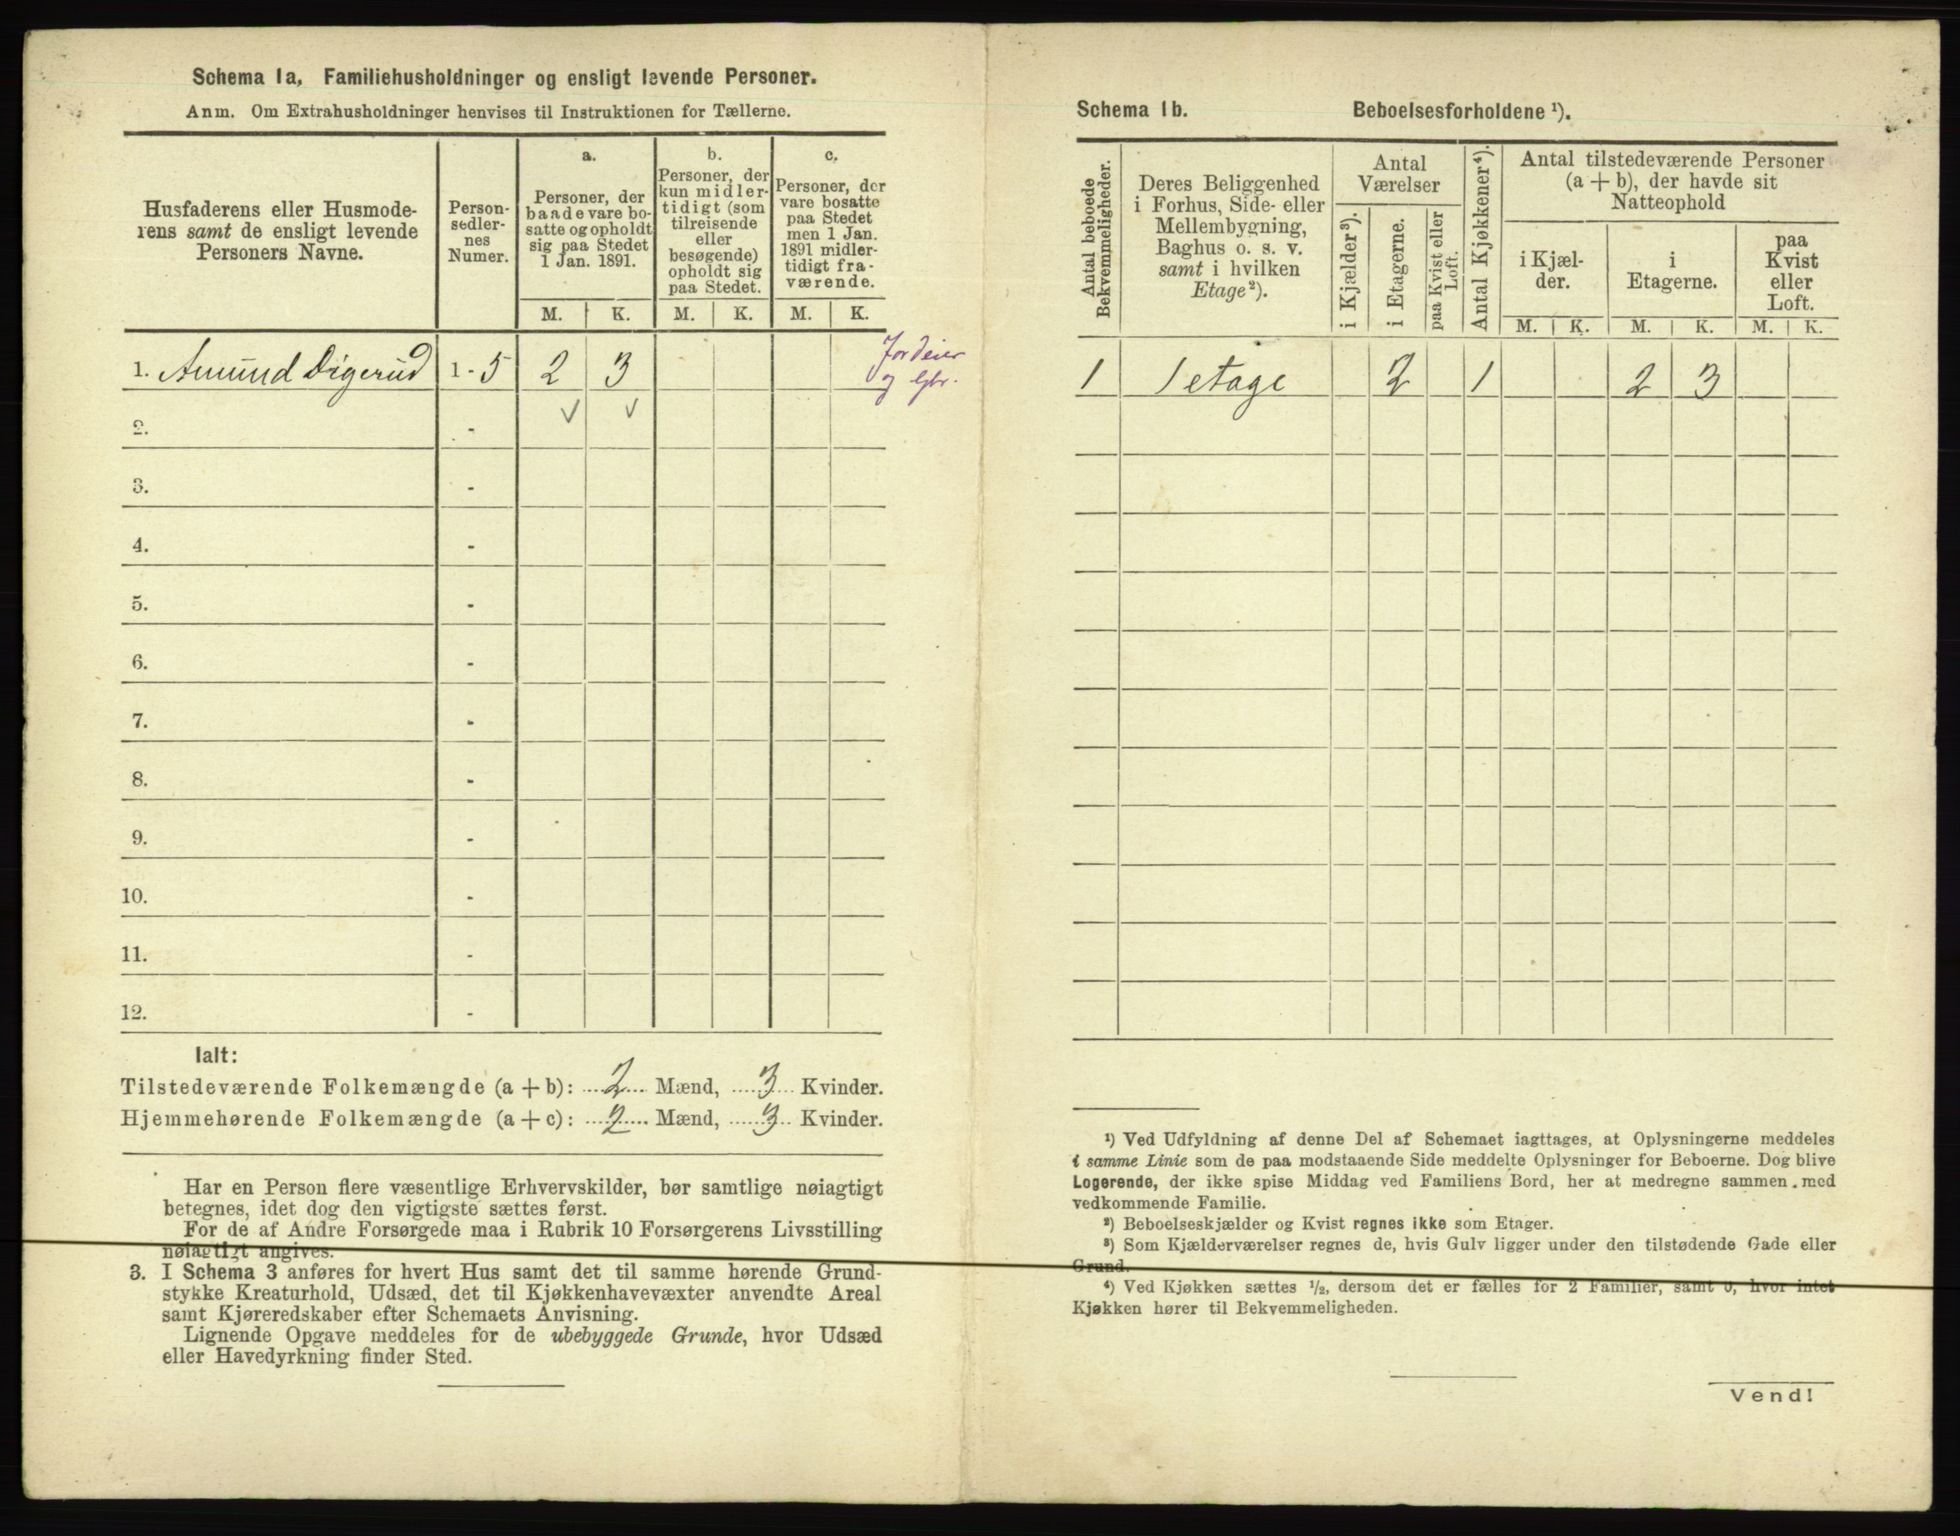 Schema 1a, Familiehusholdninger og ensligt levende Personer.
Anm. Om Extrahusholdninger henvises til Instruktionen for Tællerne.
Husfaderens eller Husmode-
rens samt de ensligt levende
Personers Navne.
Person-
sedler-
nes
Numer.
a.
Personer, der
baade vare bo-
satte og opholdt
sig paa Stedet
1 Jan. 1891.
b.
Personer, der
kun midler-
tidigt (som
tilreisende
eller
besøgende)
opholdt sig
paa Stedet.
c.
Personer, der
vare bosatte
paa Stedet
men 1 Jan.
1891 midler-
tidigt fra-
værende.
M. K. M. K. M. K.
1. Amund Digerud 1 - 5 2 3
Jordeier
og Gbr.
2. -
3. -
4. -
5. -
6. -
7. -
8. -
9. -
10. -
11. -
12. -
Ialt:
Tilstedeværende Folkemængde (a + b): 2 Mænd, 3 Kvinder.
Hjemmehørende Folkemængde (a + c): 2 Mænd, 3 Kvinder.
Har en Person flere væsentlige Erhvervskilder, bør samtlige nøiagtigt
betegnes, idet dog den vigtigste sættes først.
For de af Andre Forsørgede maa i Rubrik 10 Forsørgerens Livsstilling
nøiagtigt angives.
3. I Schema 3 anføres for hvert Hus samt det til samme hørende Grund-
stykke Kreaturhold, Udsæd, det til Kjøkkenhavevæxter anvendte Areal
samt Kjøreredskaber efter Schemaets Anvisning.
Lignende Opgave meddeles for de ubebyggede Grunde, hvor Udsæd
eller Havedyrkning finder Sted.
Schema 1b. Beboelsesforholdene ¹).
Antal beboede
Bekvemmeligheder.
Deres Beliggenhed
i Forhus, Side- eller
Mellembygning,
Baghus o. s. v.
samt i hvilken
Etage²).
Antal
Værelser
i Kjælder³).
i Etagerne.
paa Kvist eller
Loft.
Antal Kjøkkener⁴).
Antal tilstedeværende Personer
(a + b), der havde sit
Natteophold
i Kjæl-
der.
i
Etagerne.
paa
Kvist
eller
Loft.
M. K. M. K. M. K.
1 1 etage 2 1 2 3
¹) Ved Udfyldning af denne Del af Schemaet iagttages, at Oplysningerne meddeles
i samme Linie som de paa modstaaende Side meddelte Oplysninger for Beboerne. Dog blive
Logerende, der ikke spise Middag ved Familiens Bord, her at medregne sammen med
vedkommende Familie.
²) Beboelseskjælder og Kvist regnes ikke som Etager.
³) Som Kjælderværelser regnes de, hvis Gulv ligger under den tilstødende Gade eller
Grund.
⁴) Ved Kjøkken sættes ½, dersom det er fælles for 2 Familier, samt 0, hvor intet
Kjøkken hører til Bekvemmeligheden.
Vend!